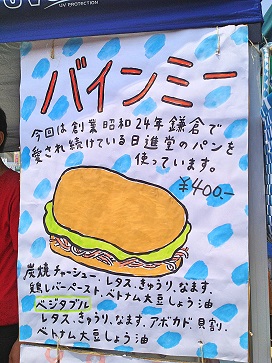 UV PROTECTION
バインミー
今回は創業昭和24年鎌倉で
愛され続けている日進堂のパンを
使っています。
¥400.-
炭焼チャーシュー・レタス、きゅうり、なます、
鶏レバーペースト、ベトナム大豆しょう油
ベジタブル
レタス、きゅうり、なます、アボカド、貝割、
ベトナム大豆しょう油